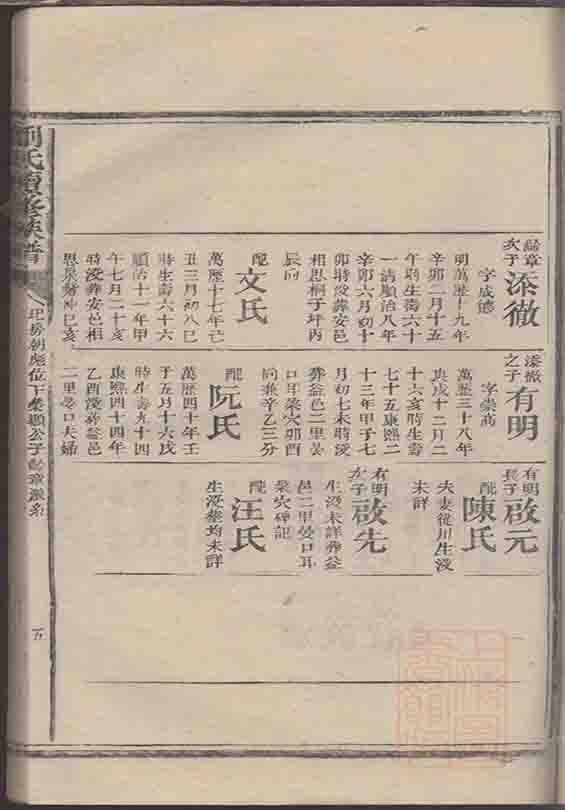 次子
添徹
字成德
明萬歷十九年
辛卯二月十五
午時生壽六十
一清順治八年
辛卯六月初十
卯時没葬安邑
相思桐子坪丙
辰向
配
文氏
萬歷十七年己
丑三月初八巳
時生壽六十六
順治十一年甲
午七月二十亥
時没葬安邑相
添徹
之子
有明
字崇高
萬歷三十八年
庚戌十二月二
十六亥時生壽
七十五康熙二
十三年甲子七
月初七未時没
葬益邑二里晏
口耳梁穴卯酉
向兼辛乙三分
配
阮氏
萬歷四十年壬
子五月十六戌
時生壽九十四
康熙四十四年
乙酉没葬益邑
二里晏口夫婦
有明
長子
啟元
配
陳氏
夫妻從川生没
未詳
有明
次子
啟先
生没未詳葬益
邑二里晏口耳
梁穴碑記
配
汪氏
生没葬均未詳
劉氏續修族譜
五